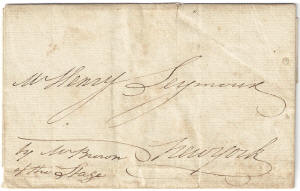 Mr Henry Seymour
New York
by Mr
of the Stage